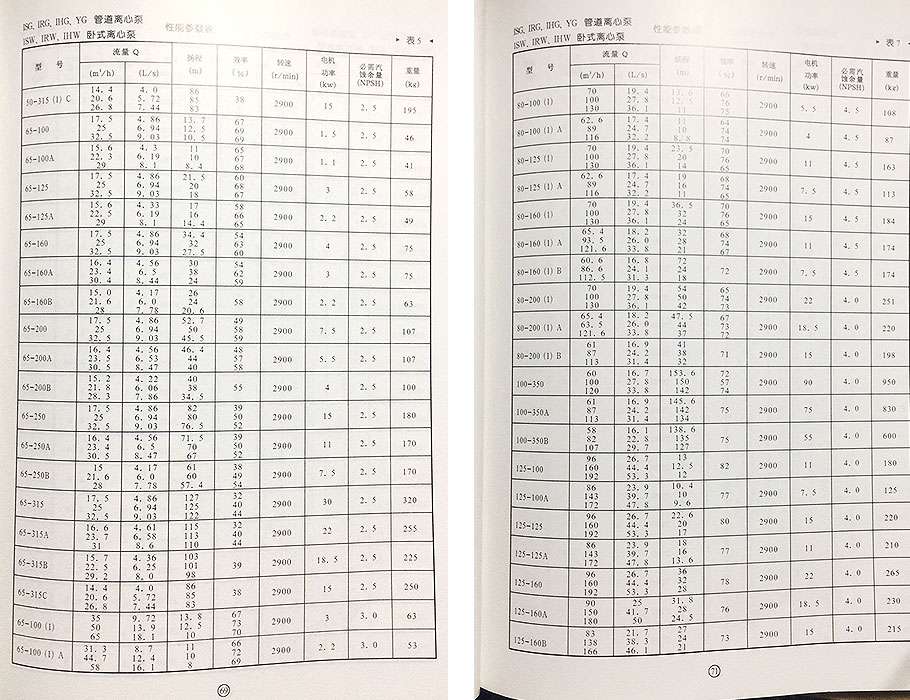 ISG, IRG, IHG, YG 管道离心泵
ISW, IRW, IHW 卧式离心泵
性能参数表
表5
型 号 流量 Q 扬程 (m) 效率 (%) 转速 (r/min) 电机功率 (kw) 必需汽蚀余量 (NPSH) 重量 (kg)
(m³/h) (L/s)
14.4 4.0 86
50-315 (I) C 20.6 5.72 85 38 2900 15 2.5 195
26.8 7.44 83
17.5 4.86 13.7 67
65-100 25 6.94 12.5 69 2900 1.5 2.5 46
32.5 9.03 10.5 69
15.6 4.3 11 65
65-100A 22.3 6.19 10 67 2900 1.1 2.5 41
29 8.1 8.4 68
17.5 4.86 21.5 60
65-125 25 6.94 20 68 2900 3 2.5 58
32.5 9.03 18 67
15.6 4.33 17 58
65-125A 22.5 6.19 16 66 2900 2.2 2.5 49
29 8.1 14.4 65
17.5 4.86 34.4 54
65-160 25 6.94 32 63 2900 4 2.5 75
32.5 9.03 27.5 60
16.4 4.56 30 54
65-160A 23.4 6.5 38 62 2900 3 2.5 75
30.4 8.44 24 59
15.0 4.17 26
65-160B 21.6 6.0 24 58 2900 2.2 2.5 63
28 7.78 20.6
17.5 4.86 52.7 49
65-200 25 6.94 50 58 2900 7.5 2.5 107
32.5 9.03 45.5 59
16.4 4.56 46.4 48
65-200A 23.5 6.53 44 57 2900 5.5 2.5 107
30.5 8.47 40 58
15.2 4.22 40
65-200B 21.8 6.06 38 55 2900 4 2.5 100
28.3 7.86 34.5
17.5 4.86 82 39
65-250 25 6.94 80 50 2900 15 2.5 180
32.5 9.03 76.5 52
16.4 4.56 71.5 39
65-250A 23.4 6.5 70 50 2900 11 2.5 170
30.5 8.47 67 52
15 4.17 61 38
65-250B 21.6 6.0 60 49 2900 7.5 2.5 170
28 7.78 57.4 54
17.5 4.86 127 32
65-315 25 6.94 125 40 2900 30 2.5 320
32.5 9.03 122 44
16.6 4.61 115 32
65-315A 23.7 6.58 113 40 2900 22 2.5 255
31 8.6 110 44
15.7 4.36 103
65-315B 22.5 6.25 101 39 2900 18.5 2.5 225
29.2 8.0 98
14.4 4.0 86
65-315C 20.6 5.72 85 38 2900 15 2.5 250
26.8 7.44 83
35 9.72 13.8 67
65-100 (I) 50 13.9 12.5 73 2900 3 3.0 63
65 18.1 10 70
31.3 8.7 11 66
65-100 (I) A 44.7 12.4 10 72 2900 2.2 3.0 53
58 16.1 8 69
69
ISG, IRG, IHG, YG 管道离心泵
ISW, IRW, IHW 卧式离心泵
表7
型 号 流量 Q 扬程 (m) 效率 (%) 转速 (r/min) 电机功率 (kw) 必需汽蚀余量 (NPSH) 重量 (kg)
(m³/h) (L/s)
70 19.4 13.6 66
80-100 (I) 100 27.8 12.5 76 2900 5.5 4.5 108
130 36.1 11 75
62.6 17.4 11 64
80-100 (I) A 89 24.7 10 74 2900 4 4.5 87
116 32.2 8.8 74
70 19.4 23.5 70
80-125 (I) 100 27.8 20 76 2900 11 4.5 163
130 36.1 14 65
62.6 17.4 19 68
80-125 (I) A 89 24.7 16 74 2900 7.5 4.5 113
116 32.2 11 65
70 19.4 36.5 70
80-160 (I) 100 27.8 32 76 2900 15 4.5 184
130 36.1 24 65
65.4 18.2 32 68
80-160 (I) A 93.5 26.0 28 74 2900 11 4.5 174
121.6 33.8 21 67
60.6 16.8 72
80-160 (I) B 86.6 24.1 24 72 2900 7.5 4.5 174
112.5 31.3 18
70 19.4 54 65
80-200 (I) 100 27.8 50 74 2900 22 4.0 251
130 36.1 42 73
65.4 18.2 47.5 67
80-200 (I) A 63.5 26.0 44 73 2900 18.5 4.0 220
121.6 33.8 37 72
61 16.9 41
80-200 (I) B 87 24.2 38 71 2900 15 4.0 198
113 31.4 32
60 16.7 153.6 72
100-350 100 27.8 150 57 2900 90 4.0 950
120 33.8 142 74
61 16.9 145.6
100-350A 87 24.2 142 75 2900 75 4.0 830
113 31.4 134
58 16.1 138.6
100-350B 82 22.8 135 75 2900 55 4.0 600
107 29.7 127
96 26.7 13
125-100 160 44.4 12.5 82 2900 11 4.0 180
192 53.3 12
86 23.9 10.4
125-100A 143 39.7 10 77 2900 7.5 4.0 125
172 47.8 9.6
96 26.7 22.6
125-125 160 44.4 20 80 2900 15 4.0 220
192 53.3 17
86 23.9 18
125-125A 143 39.7 16 77 2900 11 4.0 210
172 47.8 13.6
96 26.7 36
125-160 160 44.4 32 78 2900 22 4.0 265
192 53.3 28
90 25 31.8
125-160A 150 41.7 28 76 2900 18.5 4.0 230
180 50 24.5
83 21.7 27
125-160B 138 38.3 24 73 2900 15 4.0 215
166 46.1 21
71